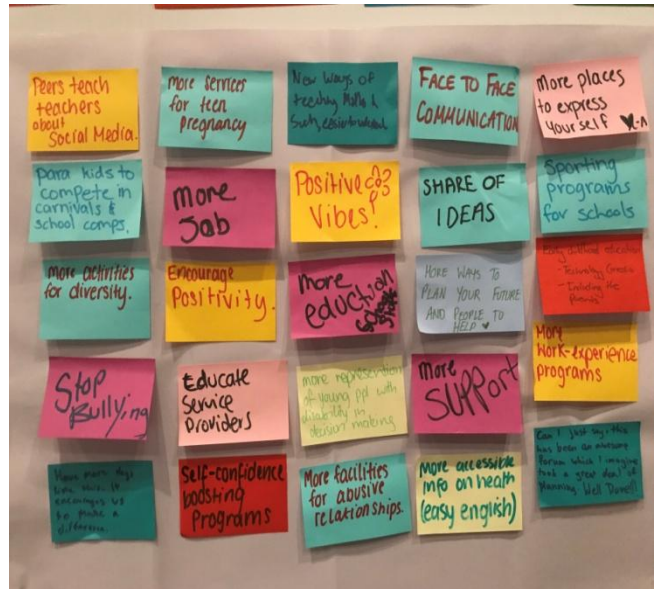 Peers teach
teachers
about
Social Media.
More services
for teen
pregnancy
New ways of
teaching Maths &
FACE TO FACE
COMMUNICATION
More places
to express
yourself
Para kids to
compete in
carnivals &
school comps.
more
Job
Positive
Vibes!
SHARE OF
IDEAS
Sporting
programs
for schools
more activities
for diversity.
Encourage
Positivity.
more
eduction
MORE WAYS TO
PLAN YOUR FUTURE
AND PEOPLE TO
HELP ♥
Early childhood education
- Technology
- Including the
Parents
Stop
Bullying
Educate
Service
Providers
more representation
of young ppl with
disability in
decision making
more
SUPPORT
More
Work-experience
programs
Have more days
like this. It
encourages us
to make a
difference.
Self-confidence
boosting
Programs
More facilities
for abusive
relationships.
More accessible
info on health
(easy english)
Can I just say, this
has been an awesome
Forum which I imagine
took a great deal of
planning. Well Done!!